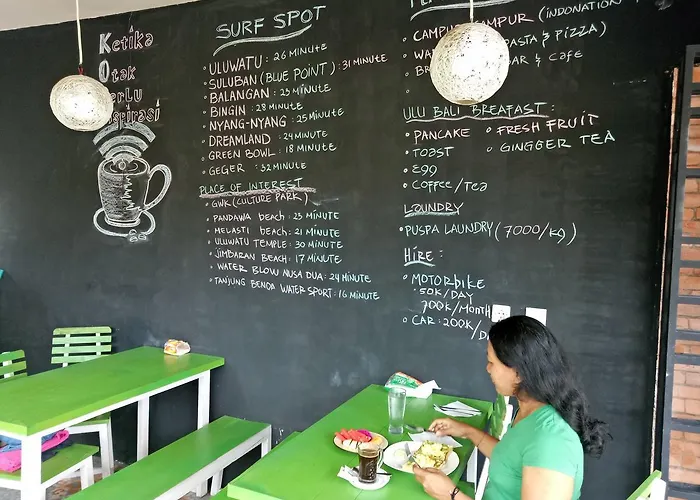 Ketika
Otak
erlu
spirasi
SURF SPOT
ULUWATU : 26 MINUTE
SULUBAN (BLUE POINT) : 31 MINUTE
BALANGAN : 23 MINUTE
BINGIN : 28 MINUTE
NYANG-NYANG : 25 MINUTE
DREAMLAND : 24 MINUTE
GREEN BOWL : 18 MINUTE
GEGER : 32 MINUTE
PLACE OF INTEREST
GWK (CULTURE PARK)
PANDAWA beach : 23 MINUTE
MELASTI beach : 21 MINUTE
ULUWATU TEMPLE : 30 MINUTE
JIMBARAN BEACH : 17 MINUTE
WATER BLOW NUSA DUA : 24 MINUTE
TANJUNG BENOA WATER SPORT : 16 MINUTE
CAMPUR (INDONATION
PASTA & PIZZA)
BAR & CAFE
ULU BALI BREAFAST :
PANCAKE
FRESH FRUIT
TOAST
GINGGER TEA
Egg
COFFEE/TEA
LOUNDRY
PUSPA LAUNDRY (7000/Kg)
HIRE :
MOTORBIKE
50K/DAY
700K/MONTH
CAR : 200K/DA